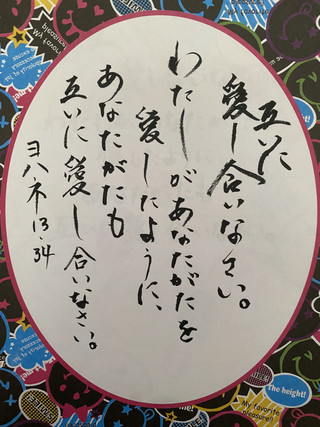 互いに
愛し合いなさい。
わたしがあなたがたを
愛したように、
あなたがたも
互いに愛し合いなさい。
ヨハネ13.34
The height!
My favorite
pleasure!!